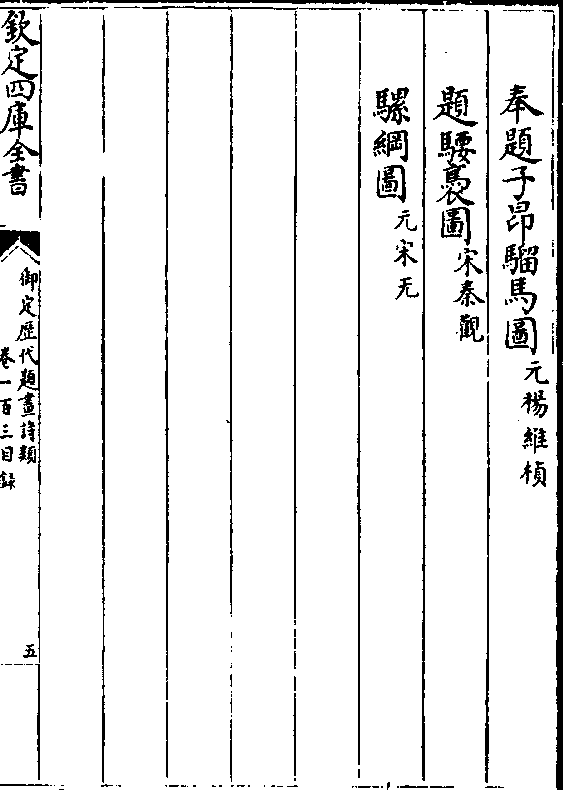 奉題子昂騮馬圖元楊維楨
題騕褭圖宋秦觀
騾綱圖元宋无
欽定四庫全書
御定歷代題畫詩類
卷一百三目錄
五